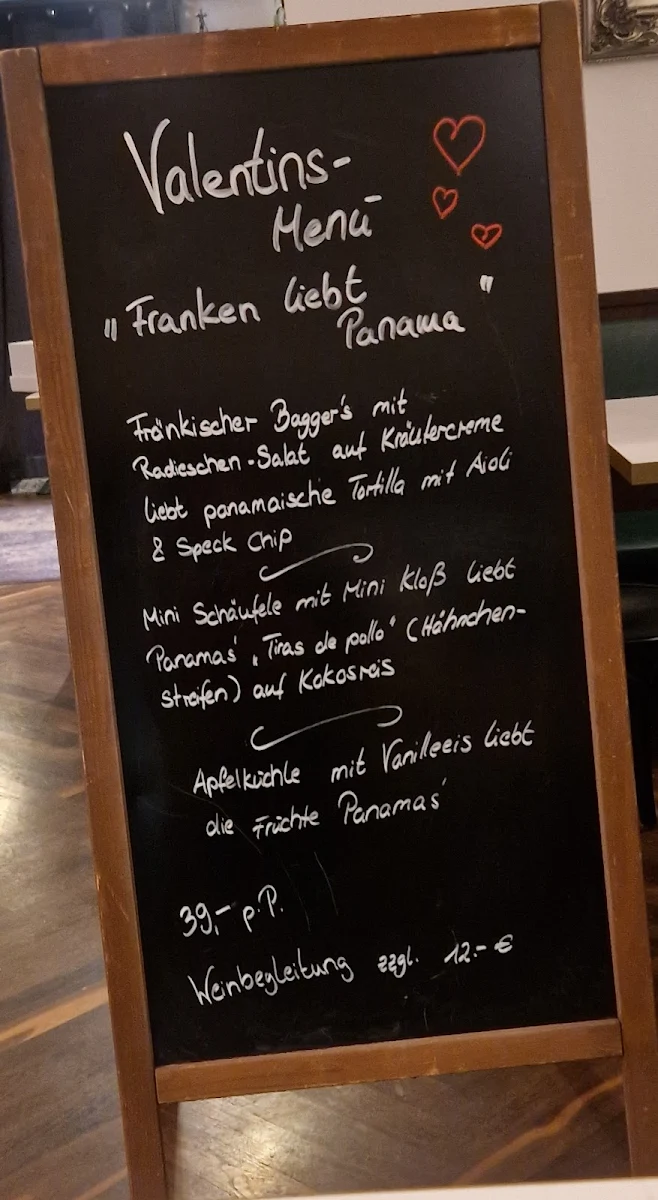 Valentins-
Menü
"Franken liebt
Panama"
Fränkischer Bagger's mit
Radieschen-Salat auf Kräutercreme
liebt panamaische Tortilla mit Aioli
& Speck Chip
Mini Schäufele mit Mini Kloß liebt
Panamas' „Tiras de pollo" (Hähnchen-
streifen) auf Kokosreis
Apfelküchle mit Vanilleeis liebt
die Früchte Panamas'
39,- p.P.
Weinbegleitung zzgl. 12.- €